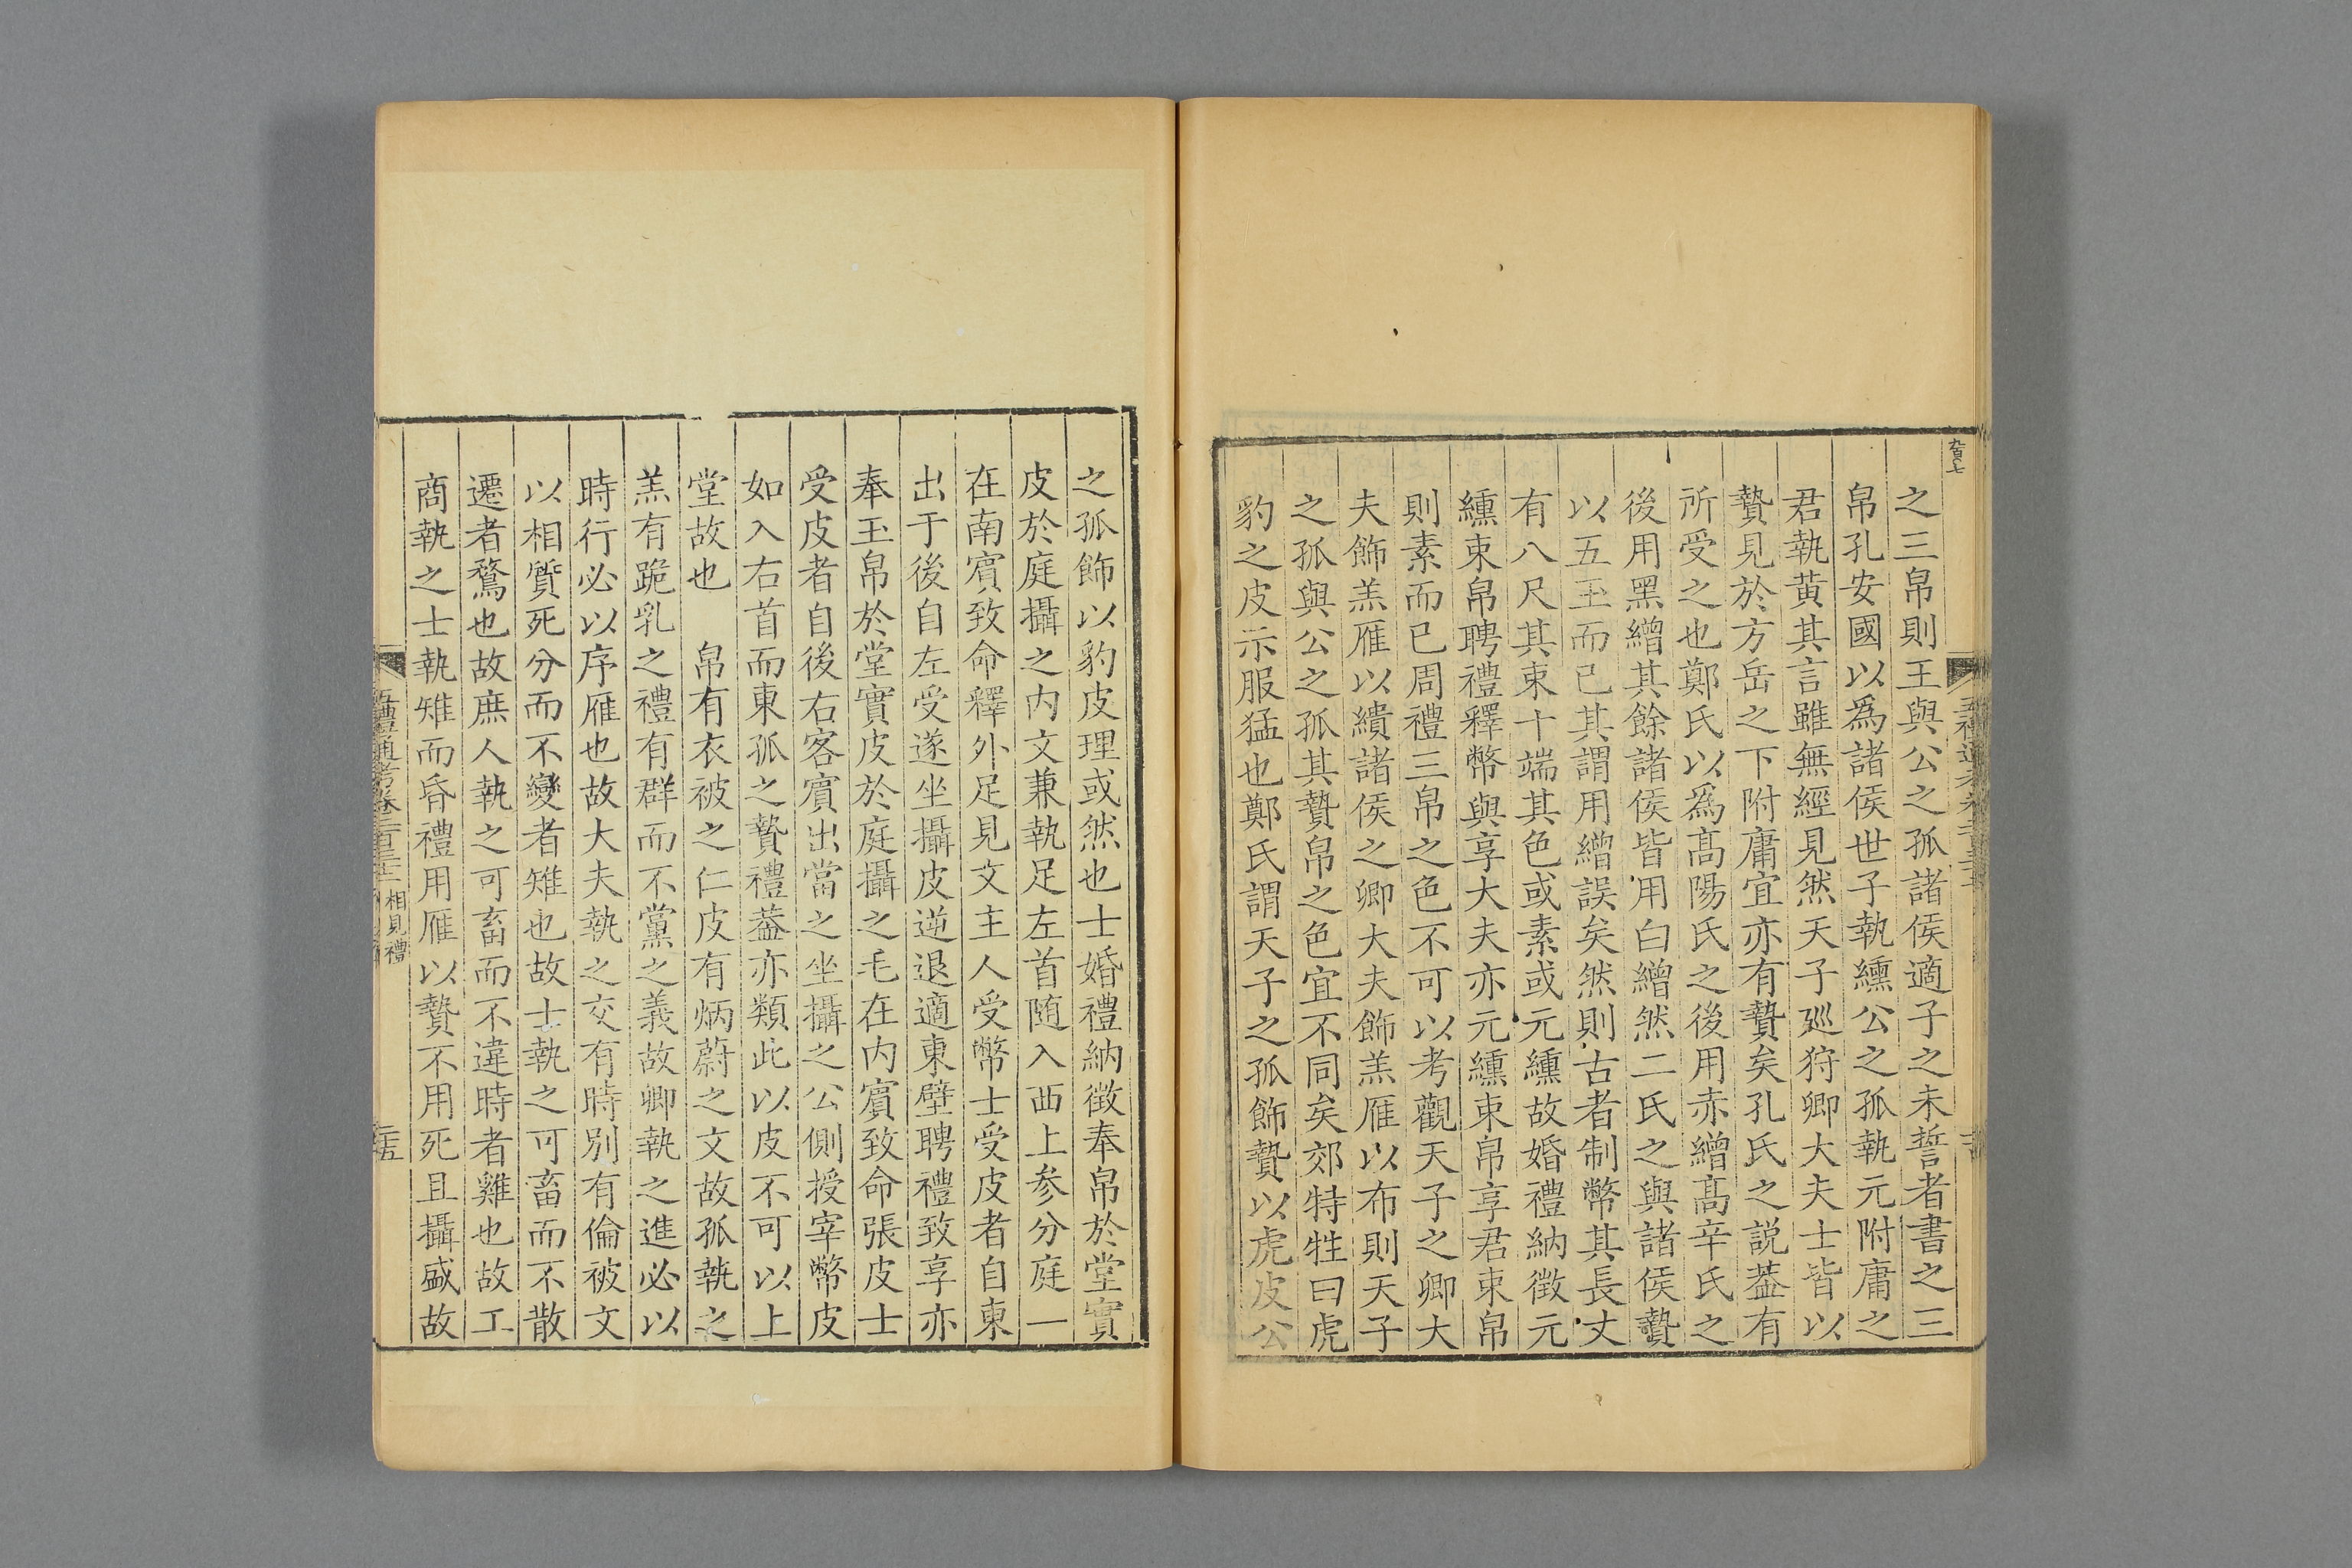 之三帛則王與公之孤諸侯適子之未誓者書之三
帛孔安國以爲諸侯世子執纁公之孤執元附庸之
君執黃其言雖無經見然天子廵狩卿大夫士皆以
贄見於方岳之下附庸宜亦有贄矣孔氏之説葢有
所受之也鄭氏以爲髙陽氏之後用赤繒髙辛氏之
後用黑繒其餘諸侯皆用白繒然二氏之與諸侯贄
以五玉而已其謂用繒誤矣然則古者制幣其長丈
有八尺其束十端其色或素或元纁故婚禮納徵元
纁束帛聘禮釋幣與享大夫亦元纁束帛享君束帛
則素而已周禮三帛之色不可以考觀天子之卿大
夫飾羔雁以繢諸侯之卿大夫飾羔雁以布則天子
之孤與公之孤其贄帛之色宜不同矣郊特牲曰虎
豹之皮示服猛也鄭氏謂天子之孤飾贄以虎皮公
之孤飾以豹皮理或然也士婚禮納徵奉帛於堂實
皮於庭攝之内文兼執足左首随入西上参分庭一
在南賓致命釋外足見文主人受幣士受皮者自東
出于後自左受遂坐攝皮逆退適東壁聘禮致享亦
奉玉帛於堂實皮於庭攝之毛在内賓致命張皮士
受皮者自後右客賓出當之坐攝之公側授宰幣皮
如入右首而東孤之贄禮葢亦類此以皮不可以上
堂故也　帛有衣被之仁皮有炳蔚之文故孤執之
羔有跪乳之禮有群而不黨之義故卿執之進必以
時行必以序雁也故大夫執之交有時别有倫被文
以相質死分而不變者雉也故士執之可畜而不散
遷者鶩也故庶人執之可畜而不違時者雞也故工
商執之士執雉而昏禮用雁以贄不用死且攝盛故
五禮通考卷二百三十二
相見禮